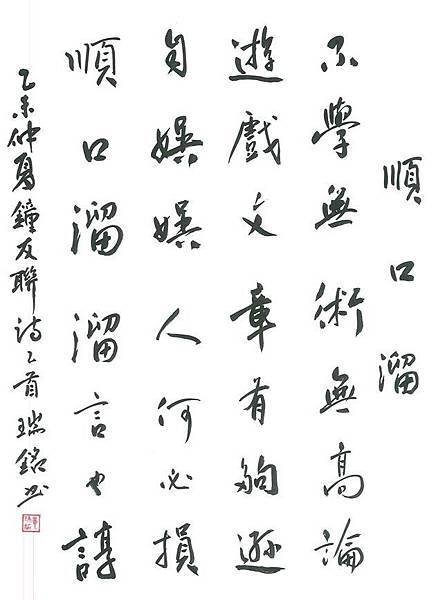 順口溜
不學無術無高論
遊戲文章有夠遜
自娛娛人何必損
順口溜溜言也諄
乙未仲夏鐘友聯詩乙首瑞銘書